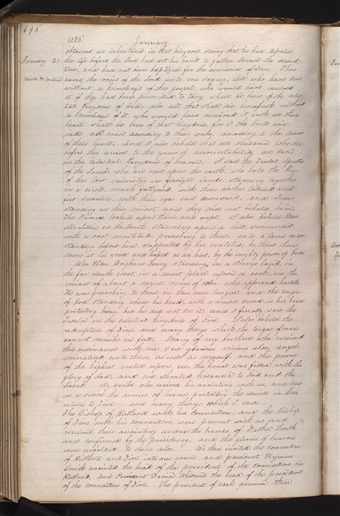 695
1836
January
obtained an inheritance in that kingdom, seeing that he had departed
January 21 his life before the Lord had set his hand to gather Israel the second
time, and had not been baptized for the remission of sins. Thus
came the voice of the Lord unto me saying, All who have died
without a knowledge of this gospel, who would have received
it if they had been permitted to tarry, shall be heirs of the celes-
tial kingdom of God; also all that shall die henceforth without
a knowledge of it, who would have received it with all their
hearts, shall be heirs of that kingdom, for I the Lord will
judge all men according to their works, according to the desire
of their hearts. And I also beheld that all children who die
before they arrive to the years of accountability, are saved
in the celestial kingdom of heaven. I saw the Twelve Apostles
of the Lamb, who are now upon the earth, who hold the keys
of this last ministry, in foreign lands, standing together
in a circle, much fatigued, with their clothes tattered and
feet swollen, with their eyes cast downward, and Jesus
standing in their midst, and they did not behold him.
The Saviour looked upon them and wept. I also beheld Elder
McLellin in the South, standing upon a hill surrounded
with a vast multitude, preaching to them, and a lame man
standing before him, supported by his crutches, he threw them
down at his word, and leaped as an hart, by the mighty power of God.
Also Elder Brigham Young standing in a strange land, in
the far south west, in a desert place, upon a rock in the
midst of about a dozen men of color, who appeared hostile.
He was preaching to them in their own tongue, and the angel
of God standing above his head, with a drawn sword in his hand
protecting him, but he did not see it. And I finally saw the
Twelve in the celestial kingdom of God. I also beheld the
redemption of Zion, and many things which the tongue of man
cannot describe in full. Many of my brethren who received
this ordinance with me, saw glorious visions also, angels
ministered unto them, as well as myself, and the power
of the highest rested upon us, the house was filled with the
glory of God, and we shouted Hosannah to God and the
Lamb. My Scribe also received his anointing with us, and saw
in a vision the armies of heaven protecting the Saints in their
return to Zion — and many things which I saw.
The Bishop of Kirtland with his Counsellors, and the Bishop
of Zion with his counsellors, were present with us, and
received their anointing under the hands of Father Smith
and confirmed by the presidency, and the glories of heaven
were unfolded to them also. We then invited the counsellors
of Kirtland and Zion into our room, and president Hyrum
Smith anointed the head of the president of the counsellors in
Kirtland, and President David Whitmer the head of the president
of the counsellors of Zion. The president of each quorum then